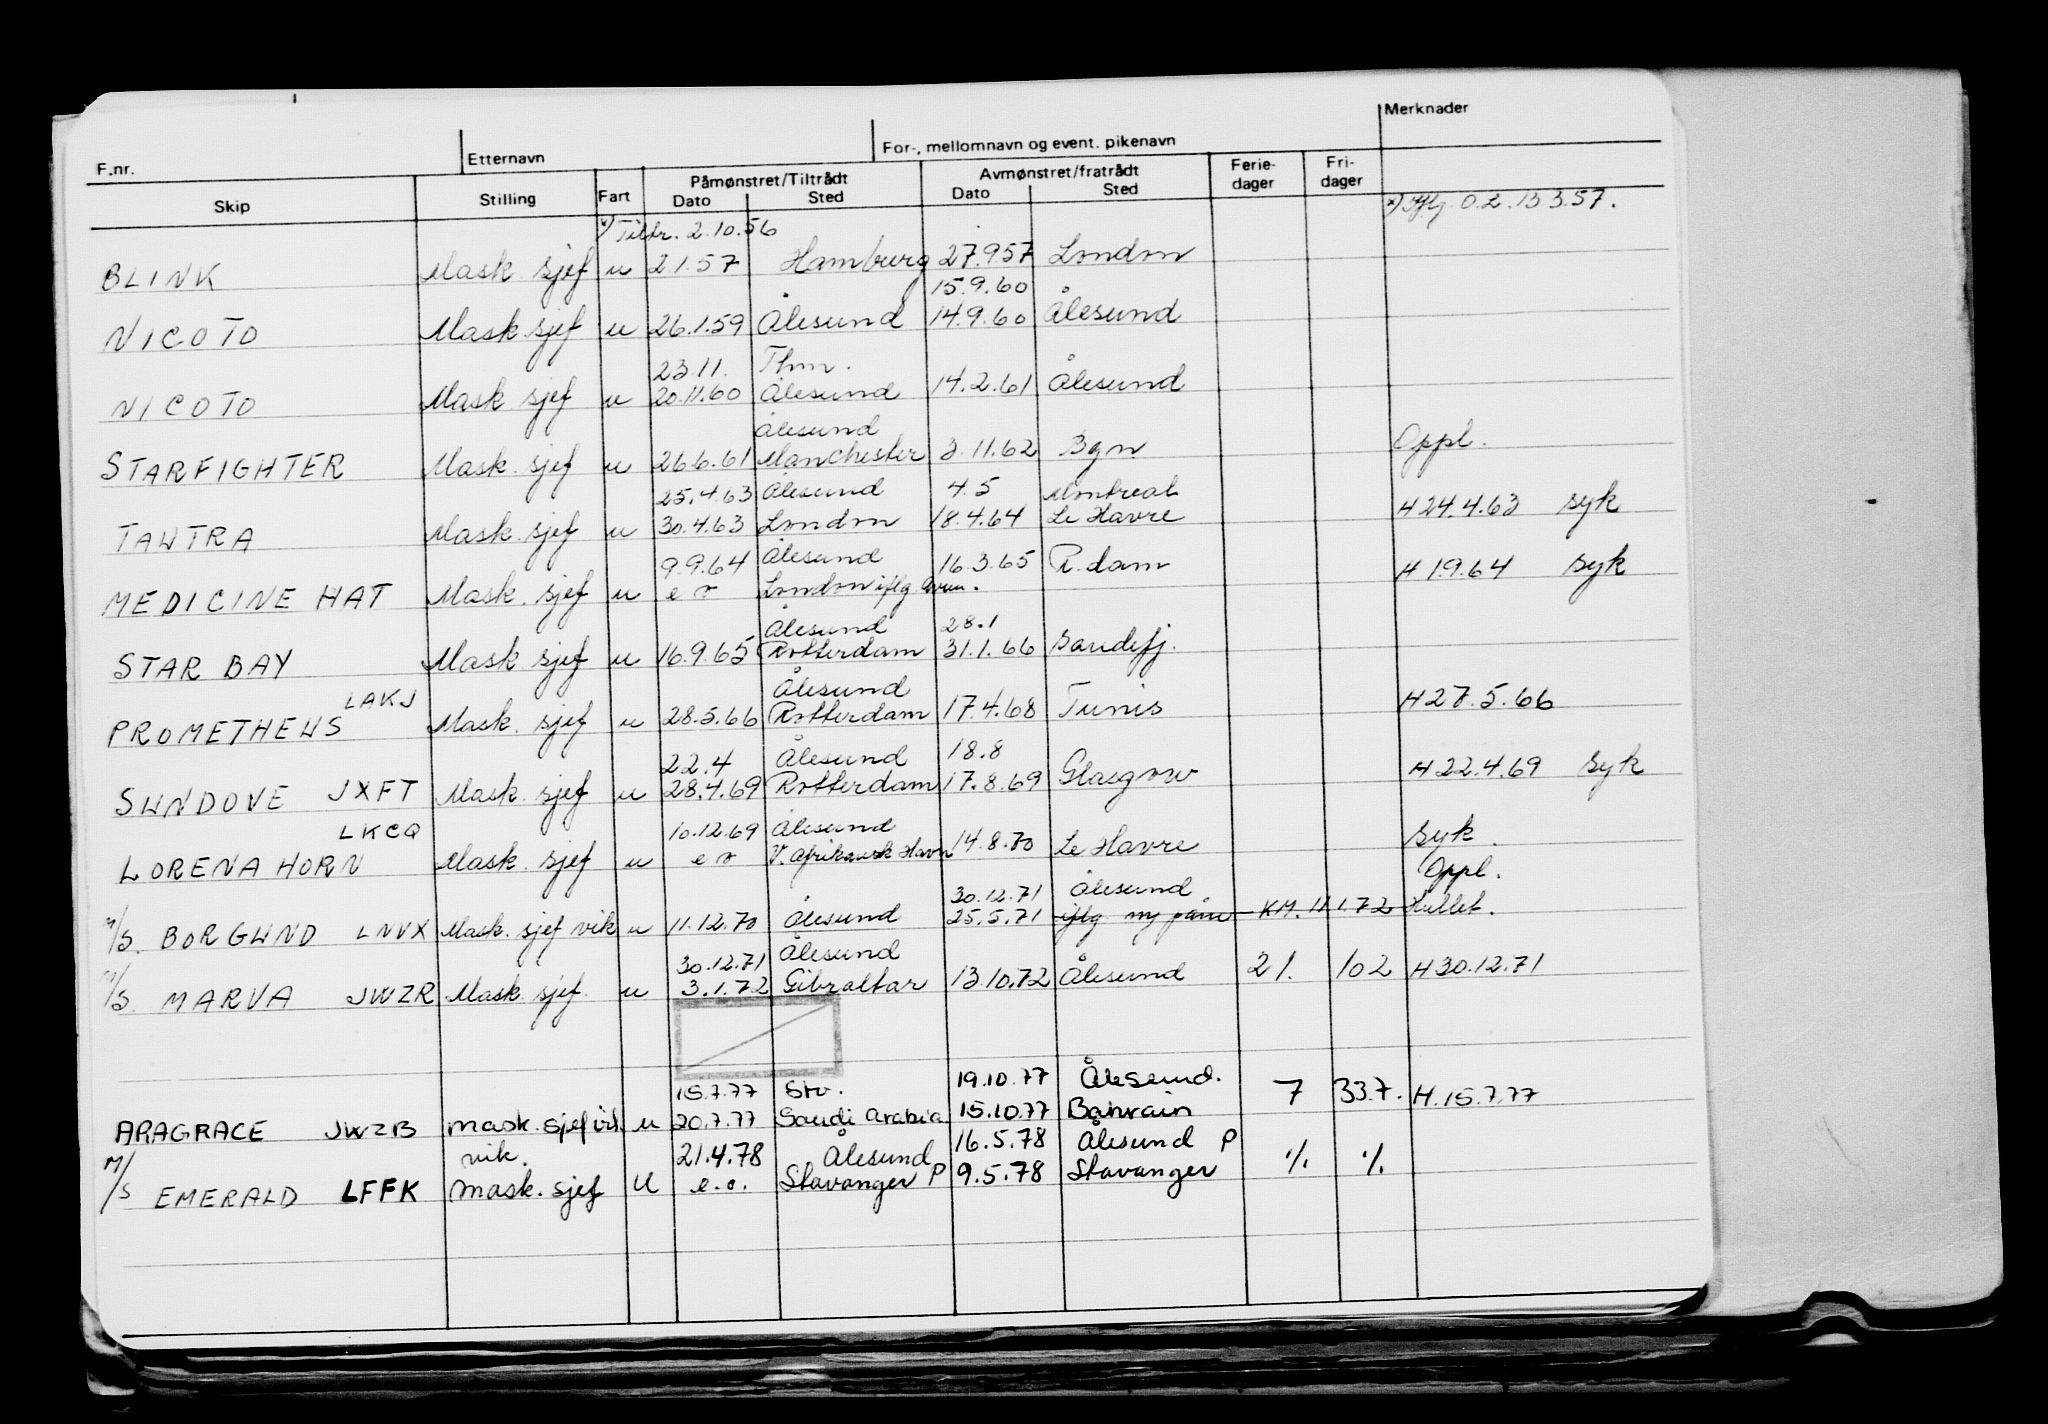 Merknader
F.nr. Etternavn For-, mellomnavn og event. pikenavn
Skip Stilling Fart Påmønstret/Tiltrådt Dato Sted Avmønstret/fratrådt Dato Sted Ferie-dager Fri-dager
x) Tiltr. 2.10.56 x) 0.2. 13 3.57.
BLINK Mask sjef u 2.1.57 Hamburg 27.9.57 London
15.9.60
NICOTO Mask sjef u 26.1.59 Ålesund 14.9.60 Ålesund
23.11. Thm.
NICOTO Mask sjef u 20.11.60 Ålesund 14.2.61 Ålesund
Ålesund
STARFIGHTER Mask. sjef u 26.6.61 Manchester 3.11.62 Bgn Oppl.
25.4.63 Ålesund 4.5 Montreal
TAUTRA Mask. sjef u 30.4.63 London 18.4.64 Le Havre H 24.4.63 syk
9.9.64 Ålesund 16.3.65 R.dam H 1.9.64 syk
MEDICINE HAT Mask. sjef u e r London iflg
Ålesund 28.1
STAR BAY Mask. sjef u 16.9.65 Rotterdam 31.1.66 Sandefj.
LAKJ Ålesund
PROMETHEUS Mask. sjef u 28.5.66 Rotterdam 17.4.68 Tunis H 27.5.66
22.4 Ålesund 18.8
SUNDOVE JXFT Mask. sjef u 28.4.69 Rotterdam 17.8.69 Glasgow H 22.4.69 syk
LKCQ 10.12.69 Ålesund
LORENA HORN Mask. sjef u e r V. Afrikansk Havn 14.8.70 Le Havre syk.
30.12.71 Ålesund Oppl.
M/S. BORGUND LNVX Mask. sjef vik u 11.12.70 Ålesund 25.5.71 iflg ny påm KM. 11.1.72 Hullet.
30.12.71 Ålesund
M/S. MARVA JWZR Mask. sjef. u 3.1.72 Gibraltar 13.10.72 Ålesund 21. 102 H 30.12.71
15.7.77 Stv. 19.10.77 Ålesund.
ARAGRACE JWZB mask. sjef vik. u 20.7.77 Saudi Arabia 15.10.77 Bahrain 7 33.7. H. 15.7.77
vik. 21.4.78 Ålesund 16.5.78 Ålesund P
M/S EMERALD LFFK mask. sjef u e.o. Stavanger P 9.5.78 Stavanger ./. ./.